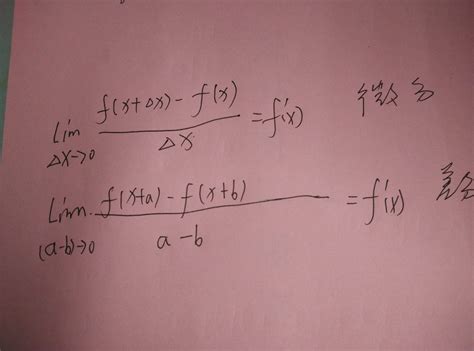 lim Δx→0 f(x+Δx) - f(x) / Δx = f'(x) 微分
lim (a-b)→0 f(x+a) - f(x+b) / a-b = f'(x) 差分